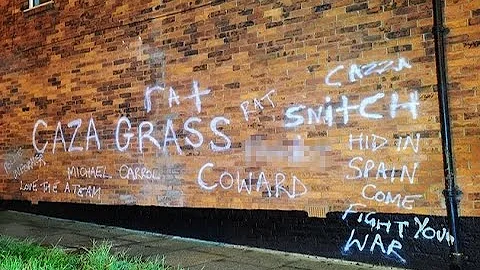 rat
CAZA GRASS
RAT
MICHAEL CARROL
LOVE THE A TEAM
COWARD
CAZZA
SNITCH
HID IN
SPAIN
COME
FIGHT YOUR
WAR